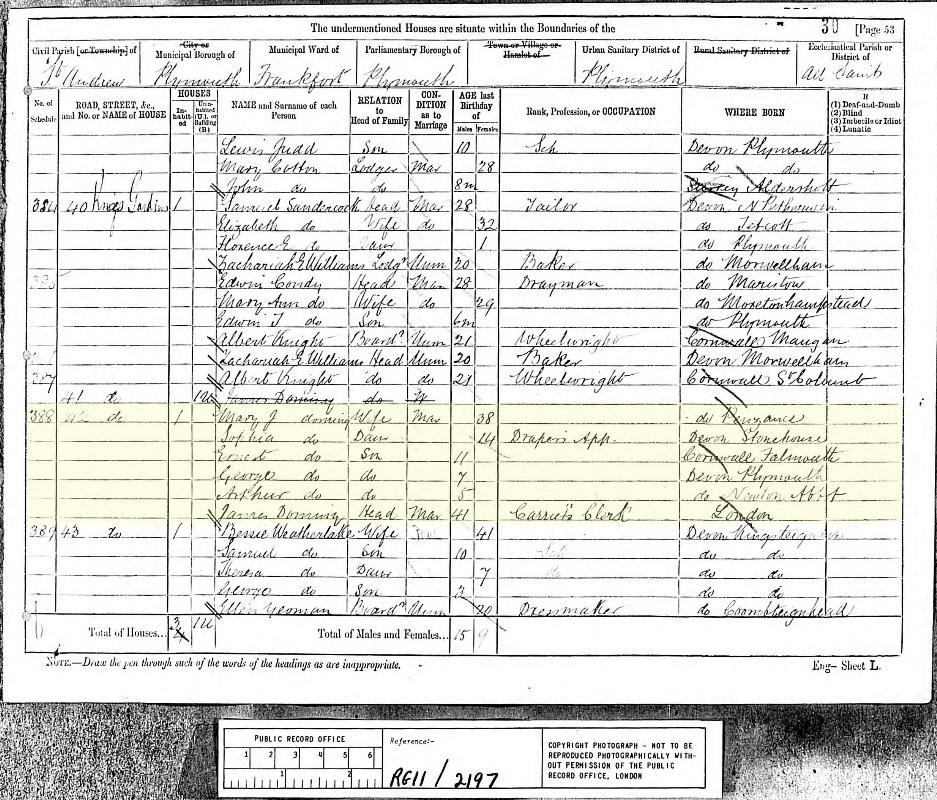 The undermentioned Houses are situate within the Boundaries of the 30 [Page 53
Civil Parish [or Township] of City or Municipal Borough of Municipal Ward of Parliamentary Borough of Town or Village or Hamlet of Urban Sanitary District of Rural Sanitary District of Ecclesiastical Parish or District of
St Andrew Plymouth Frankfort Plymouth Plymouth All Saints
No. of Schedule ROAD, STREET, &c., and No. or NAME of HOUSE HOUSES Inhabited Uninhabited (U.), or Building (B) NAME and Surname of each Person RELATION to Head of Family CONDITION as to Marriage AGE last Birthday of Males Females Rank, Profession, or OCCUPATION WHERE BORN If (1) Deaf-and-Dumb (2) Blind (3) Imbecile or Idiot (4) Lunatic
Lewis Judd Son 10 Sch Devon Plymouth
Mary Cotton Lodger Mar 28 do do
John do do 8m Surrey Aldershott
384 40 Kings Gardens 1 Samuel Sandercock Head Mar 28 Tailor Devon N Petherwin
Elizabeth do Wife do 32 do Tetcott
Florence E do Daur 1 do Plymouth
Zachariah E Williams Lodgr Unm 20 Baker do Morwellham
385 Edwin Condy Head Mar 28 Drayman do Maristow
Mary Ann do Wife do 29 do Moretonhampstead
Edwin J do Son 6m do Plymouth
Albert Knight Boardr Unm 21 Wheelwright Cornwall Maugan
Zachariah E Williams Head Unm 20 Baker Devon Morwellham
387 Albert Knight do do 21 Wheelwright Cornwall St Columb
41 do 1U James Dorning do
388 42 do 1 Mary J dorning Wife Mar 38 do Penzance
Sophia do Daur 14 Drapers App. Devon Stonehouse
Ernest do Son 11 Cornwall Falmouth
George do do 7 Devon Plymouth
Arthur do do 5 do Newton Abbt
James Dorning Head Mar 41 Carrier's Clerk London
389 43 do 1 Bessie Weatherlake Wife 41 Devon Kingsteignton
Samuel do Son 10 Sch do do
Theresa do Daur 7 do do do
George do Son 3 do do
Ellen Yeoman Boardr Unm 20 Dressmaker do Coombteignhead
Total of Houses... 3 1U Total of Males and Females... 15 9
NOTE.—Draw the pen through such of the words of the headings as are inappropriate. Eng— Sheet L.
PUBLIC RECORD OFFICE
1 2 3 4 5 6
1 2
Reference:-
RG11 / 2197
COPYRIGHT PHOTOGRAPH - NOT TO BE
REPRODUCED PHOTOGRAPHICALLY WITH-
OUT PERMISSION OF THE PUBLIC
RECORD OFFICE, LONDON